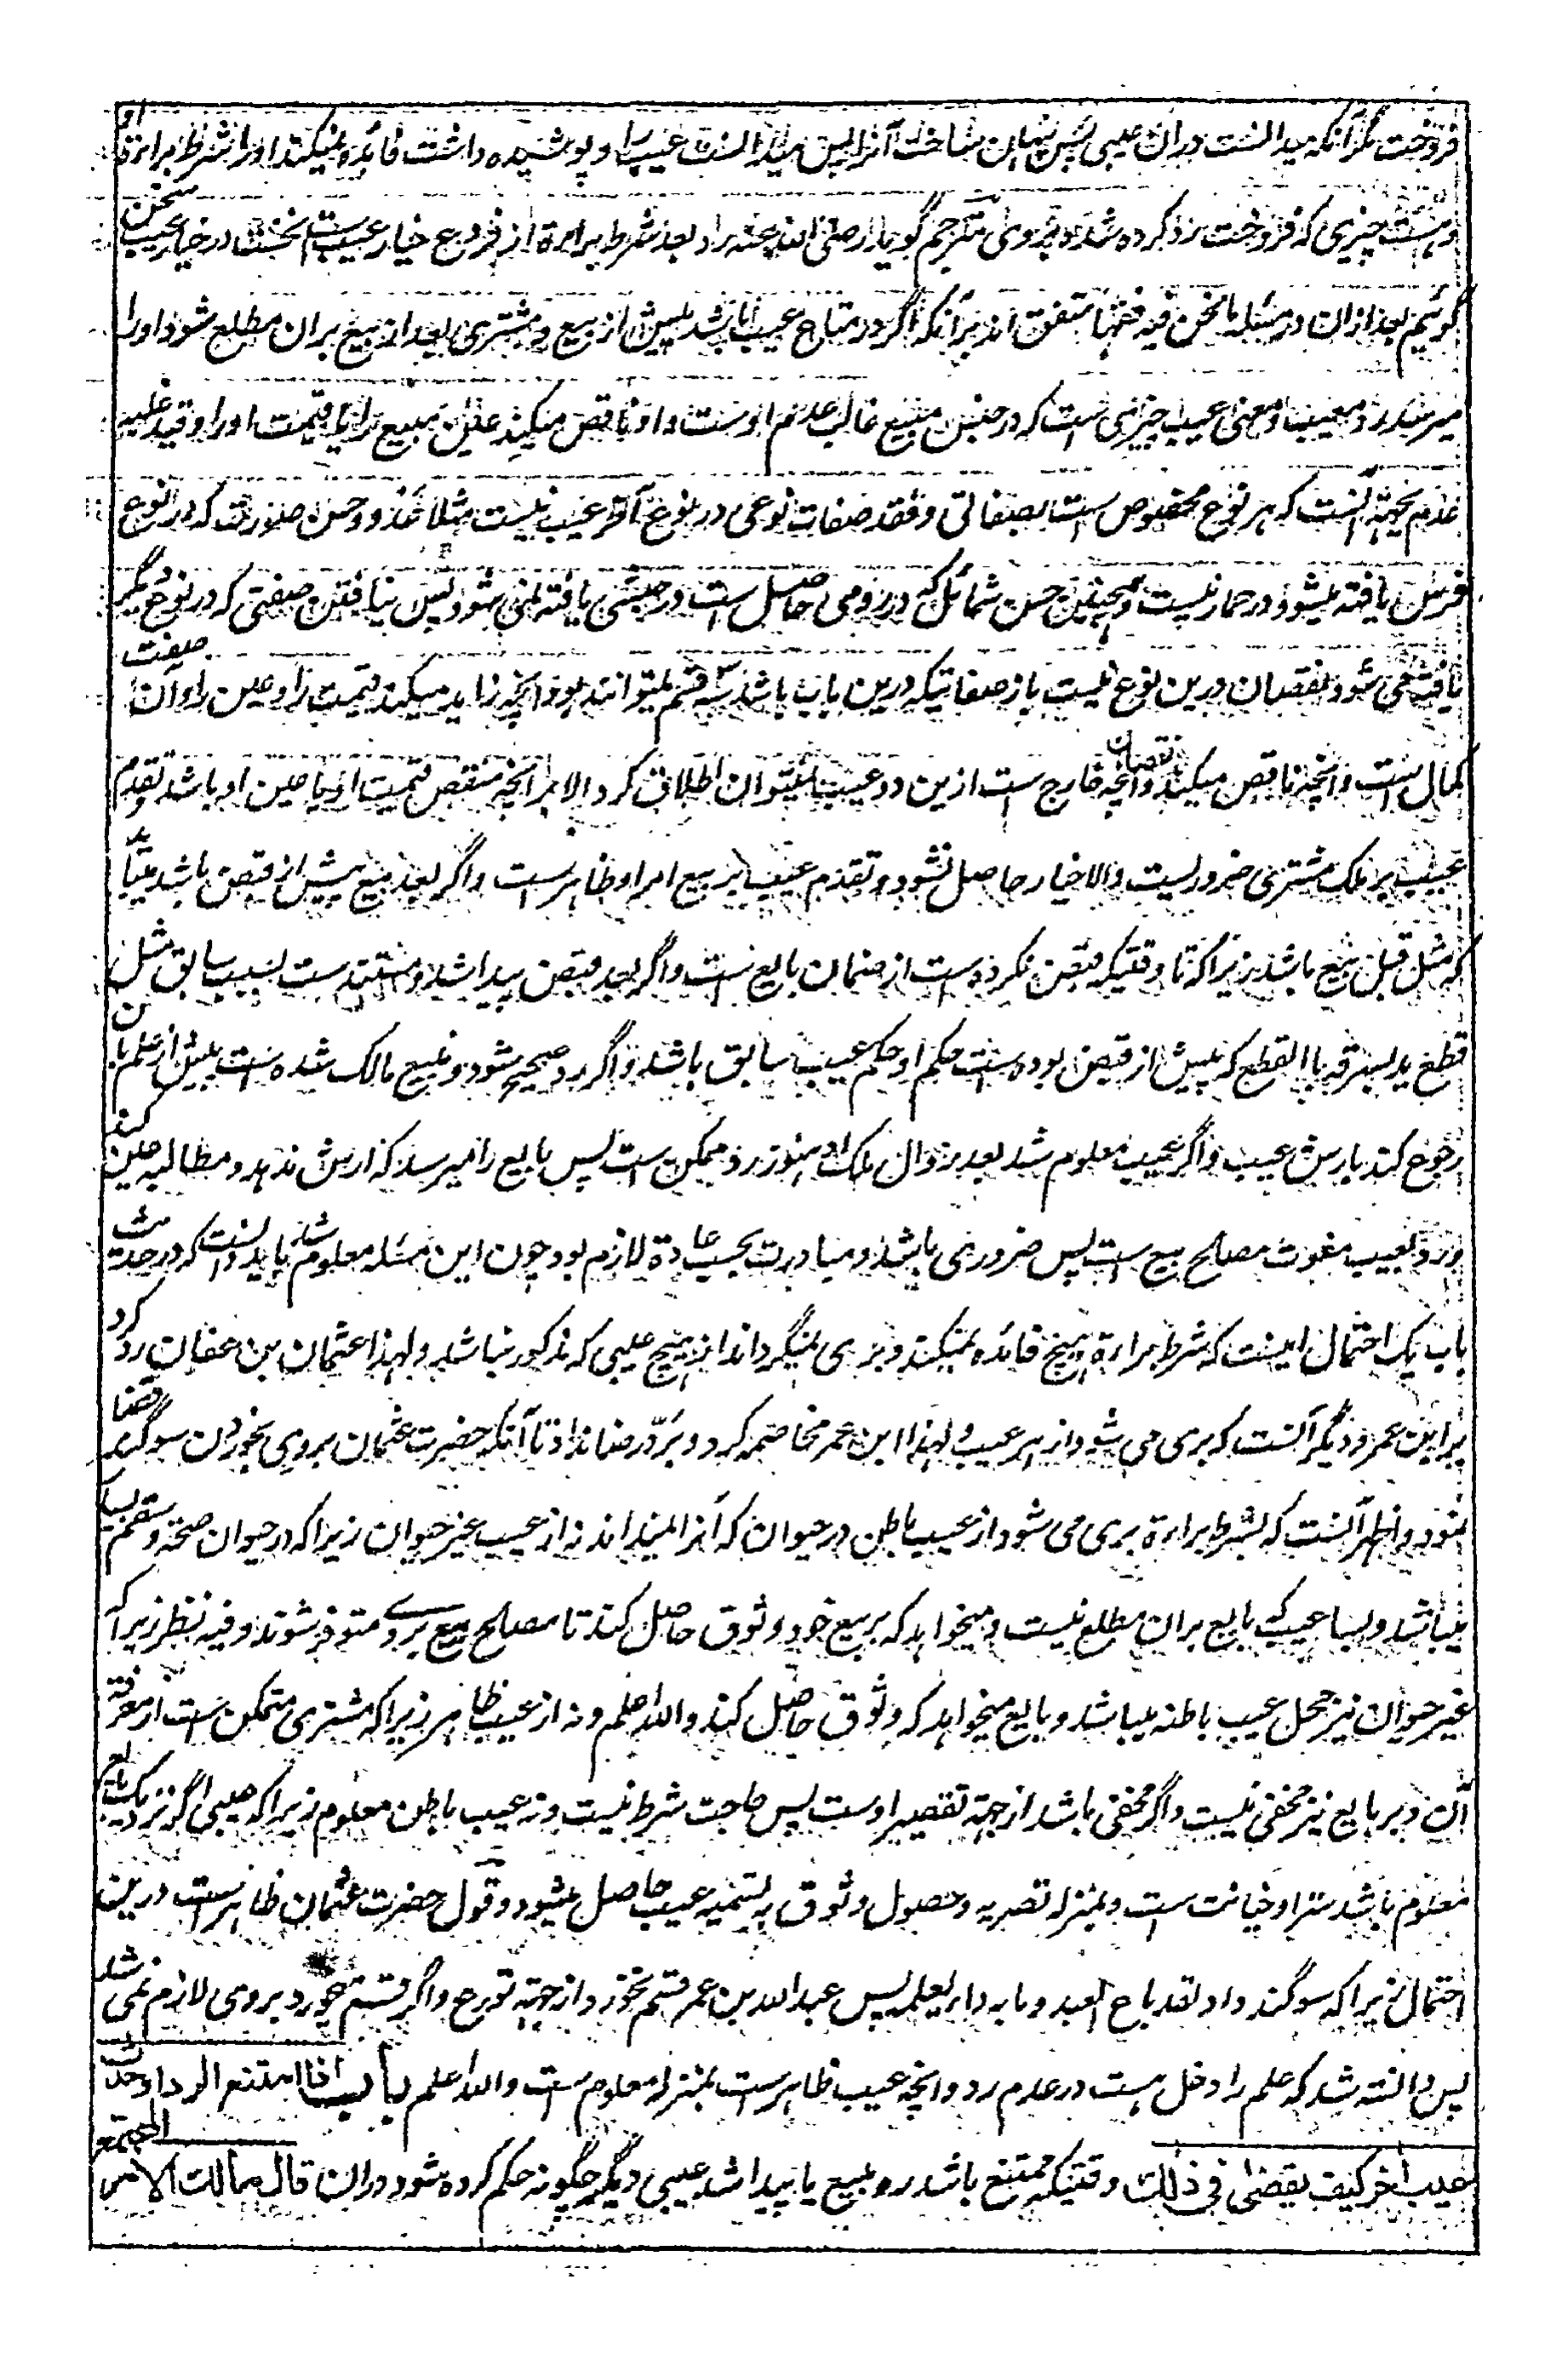 فروخت مگر آنکه میدانست دران عیبی پس پنهان ساخت آنرا پس میدانست عیب را و پوشیده داشت فائده نمیکند او را شرط براءة او
و هست چیزی که فروخت رد کرده شده بر وی مترجم گوید رضی الله عنه رد بعد شرط براءة از فروع خیار عیب ست نخست در خیار عیب سخن
گوئیم بعد ازان در مسئله ما نحن فیه فقها متفق اند برآنکه اگر در متاع عیب باشد پیش از بیع و مشتری بعد از بیع بران مطلع شود او را
میرسد رد معیب و معنی عیب چیزی ست که در جنس مبیع غالب عدم اوست و او ناقص میکند عین مبیع را یا قیمت او را و قید غلبه
عدم بجهة آنست که هر نوع مخصوص ست بصفاتی و فقد صفات نوعی در نوع آخر عیب نیست مثلا عدو و حسن صورت که در نوع
فرس یافته میشود در حمار نیست و همچنین حسن شمائل که در رومی حاصل ست در حبشی یافته نمی شود پس نیافتن صفتی که در نوع دیگر
یافت می شود نقصان درین نوع نیست باز صفاتیکه درین باب باشد سه قسم میتوانند بود آنچه زاید میکند قیمت را و عین را و آن صفت
کمال ست و آنچه ناقص میکند و آنچه خارج ست ازین دو عیب نمیتوان اطلاق کرد الا بر آنچه منقص قیمت او یا عین او باشد و تقدم نقصان
عیب بر ملک مشتری ضرورست والا خیار حاصل نشود و تقدم عیب بر بیع امر او ظاهر ست و اگر بعد بیع پیش از قبض باشد میباید
که مثل قبل بیع باشد زیرا که تا وقتیکه قبض نکرده ست از ضمان بایع ست و اگر بعد قبض پیدا شد و مستند ست بسبب سابق مثل
قطع ید بسرقه یا القطع که پیش از قبض بوده ست حکم او حکم عیب سابق باشد و اگر رد صحیح شود و مبیع مالک شده ست پیش از علم بآن
رجوع کند بارش عیب و اگر عیب معلوم شد بعد زوال ملک او هنوز رد ممکن ست پس بایع را میرسد که ارش ندهد و مطالبه عین کند
و رد بعیب مفوت مصلح بیع ست پس ضروری باشد و مبادرت بحسب عادة لازم بود چون این مسئله معلوم شد باید دانست که در حدیث
باب یک احتمال اینست که شرط براءة هیچ فائده نمیکند و بری نمیگرداند از هیچ عیبی که مذکور نباشد و لهذا عثمان بن عفان رد کرد
بر ابن عمر و دیگر آنست که بری می شود از هر عیب و لهذا ابن عمر مخاصمه کرد و برد رضا نداد تا آنکه حضرت عثمان بر وی بخوردن سوگند قضا
نمود و اظهر آنست که بشرط براءة بری می شود از عیب باطن در حیوان که آنرا نمیداند نه از عیب غیر حیوان زیرا که در حیوان صحة و سقم بسیار
میباشد و بسا عیب که بایع بران مطلع نیست و میخواهد که بر بیع خود وثوق حاصل کند تا مصلح بیع بر وے متوفر شوند و فیه نظر زیرا که
غیر حیوان نیز محل عیب باطنه میباشد و بایع میخواهد که وثوق حاصل کند والله اعلم و نه از عیب ظاهر زیرا که مشتری متمکن ست از معرفة
آن و بر بایع نیز مخفی نیست و اگر مخفی باشد از جهة تقصیر اوست پس حاجت شرط نیست و نه عیب باطن معلوم زیرا که عیبی اگر نزدیک بایع
معلوم باشد ستر او خیانت ست و بمنزله تصریه و حصول وثوق به تسمیه عیب حاصل میشود و قول حضرت عثمان ظاهر ست درین
احتمال زیرا که سوگند داد لقد باع العبد و ما به داء یعلمه پس عبد الله بن عمر قسم نخورد از جهة تورع و اگر قسم خورد بر وی لازم نمی شد
پس دانسته شد که علم را دخل هست در عدم رد و آنچه عیب ظاهر ست بمنزله معلوم ست والله اعلم باب اذا امتنع الرد او حدث
عیب آخر کیف یقضی فی ذلک وقتیکه ممتنع باشد رد مبیع یا پیدا شد عیبی دیگر چگونه حکم کرده شود دران قال مالک الامر المجتمع